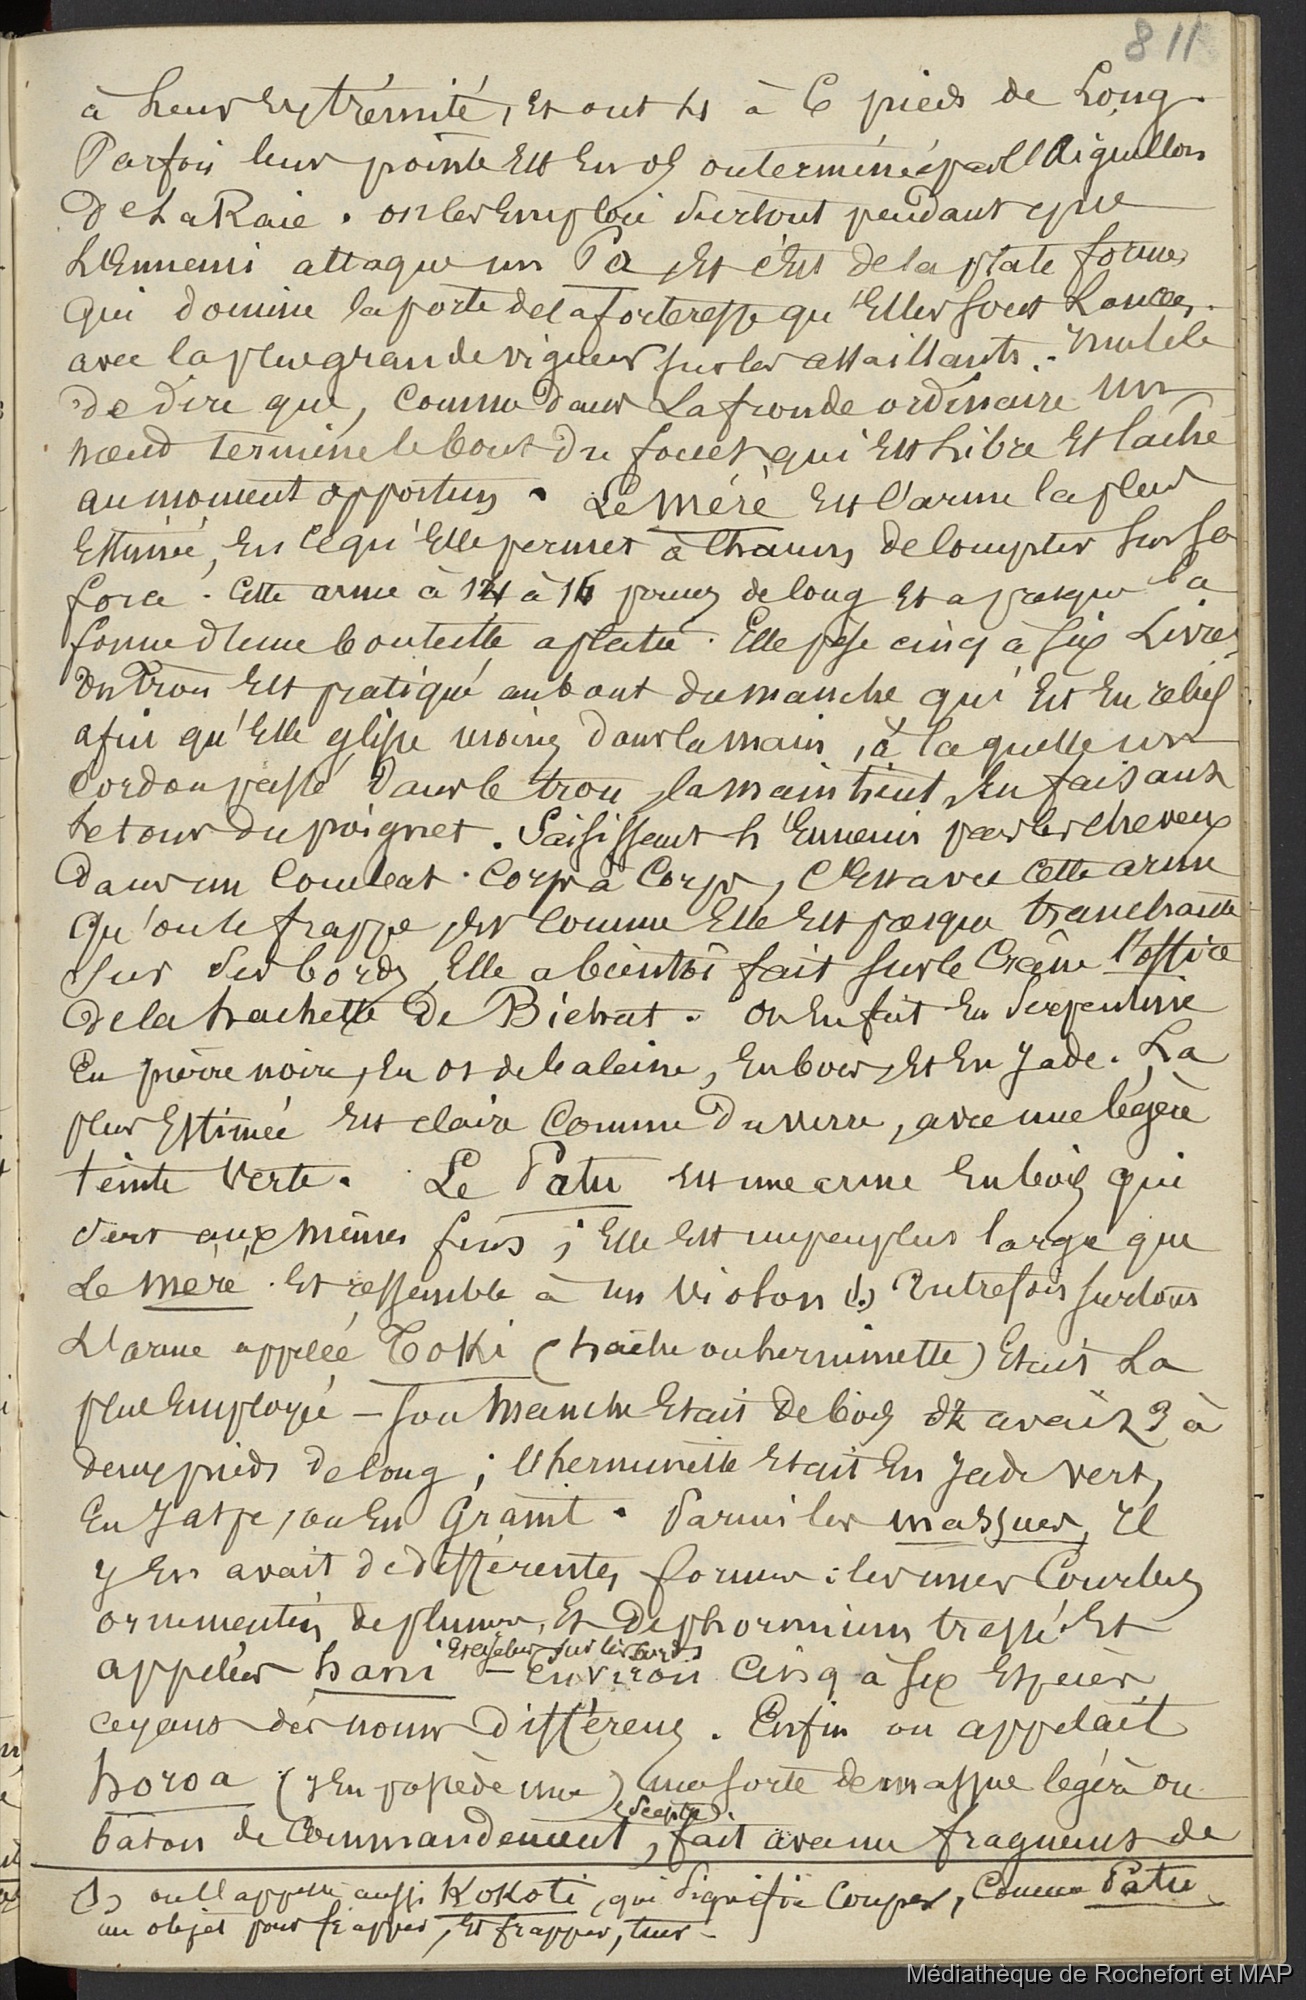 811
à leur extrémité, et ont 4 à 6 pieds de Long.
Parfois leur pointe est en os ou terminée par l'Aiguillon
De La Raie. on les emploie surtout pendant que
L'Ennemi attaque un Pa, et c'est de la plate forme
qui domine la porte de la forteresse qu'elles sont Lancées
avec la plus grande vigueur sur les assaillants. Inutile
de dire que, comme dans La fronde ordinaire un
nœud termine le bout du fouet qui est libre et laché
au moment opportun. Le méré est l'arme la plus
Estimée, en ce qu'elle permet à chacun de compter sur sa
force. Cette arme à 14 à 16 pouces de long et a presque la
forme d'une bouteille aplatie. Elle pèse cinq à six Livres
Un trou est pratiqué au bout du manche qui est en relief
afin qu'elle glisse moins dans la main, à laquelle un
cordon passé dans le trou, la maintient, en faisant
le tour du poignet. Saisissant l'Ennemi par les cheveux
dans un Combat corps à Corps, C'est avec cette arme
qu'on le frappe, et comme elle est presque tranchante
sur ses bords, Elle a bientôt fait sur le Crâne l'office
de la hachette de Bichat. On en fait en Serpentine
en pierre noire, en os de baleine, en bois, et en Jade. La
plus Estimée est claire comme du verre, avec une légère
teinte verte. Le Patu est une arme en bois qui
sert aux mêmes fins ; elle est un peu plus large que
Le méré. et ressemble à un Violon (1) Autrefois surtout
L'arme appelée Toki (hache ou herminette) Etait La
plus employée – son manche était de bois et avait
deux pieds de long ; l'herminette etait en Jade vert,
en Jaspe, ou en Granit. Parmi les massues, il
y en avait de différentes formes : les unes Courbes
ornementées de plumes, et de phormium tressé et
et ciselées sur les bords
appelées hani – Environ Cinq à six Espèces
ayant des noms différens. Enfin on appelait
horoa (j'en possède une) une sorte de massue légère ou
sceptre
bâton de commandement, fait avec un fragment de
(1) on l'appelle aussi Kokoti, qui signifie Couper, Comme Patu
un objet pour frapper, et frapper, tuer –
Médiathèque de Rochefort et MAP